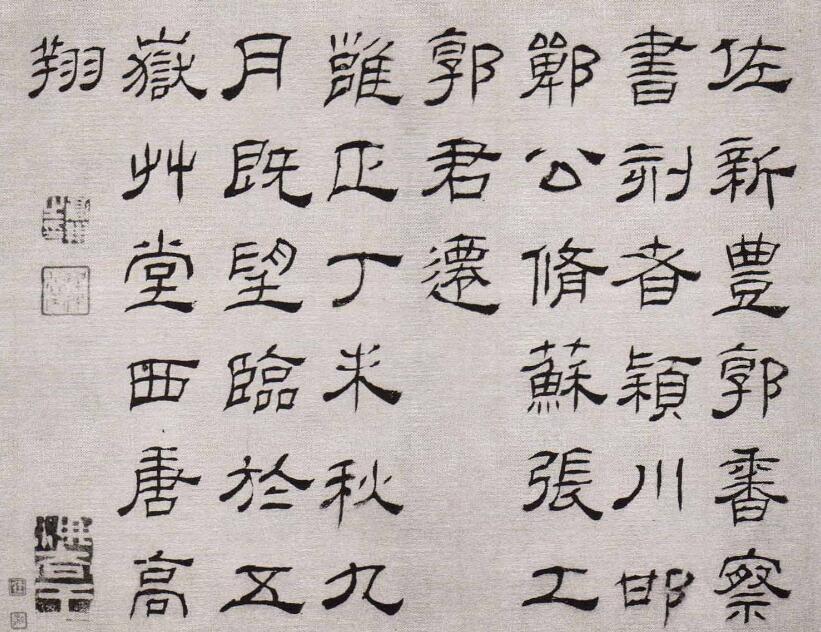 佐新豊郭香察
書刻者潁川邯
鄲公脩蘇張工
郭君遷
雍正丁未秋九
月既望臨於五
嶽艸堂西唐高
翔